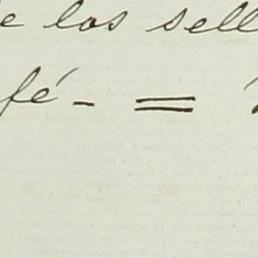 e los sell
fé - =